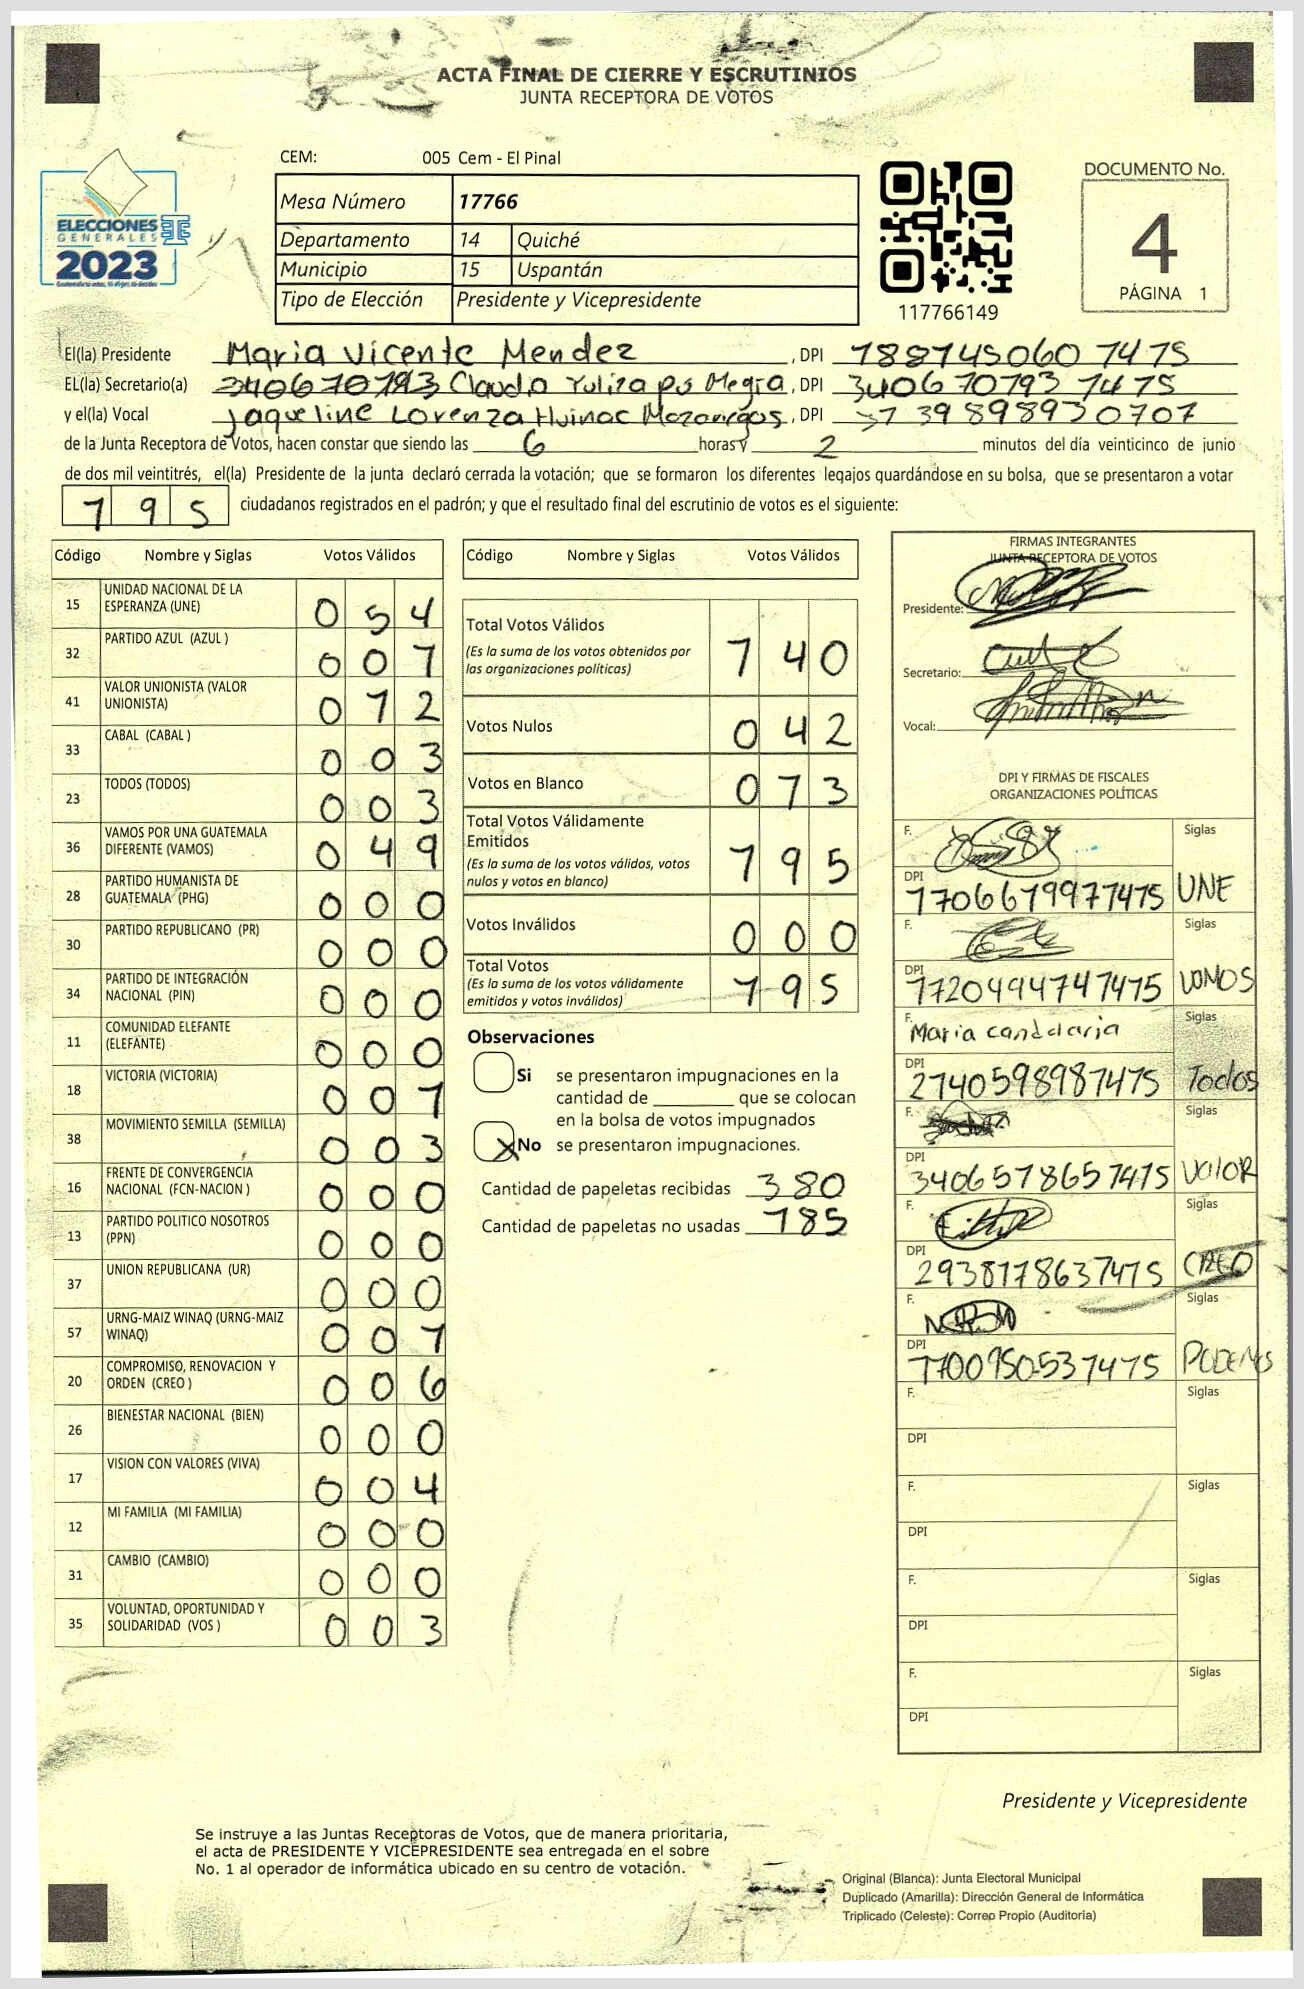 ACTA FINAL DE CIERRE Y ESCRUTINIOS
JUNTA RECEPTORA DE VOTOS
CEM: 005 Cem - El Pinal
Mesa Número 17766
Departamento 14 Quiché
Municipio 15 Uspantán
Tipo de Elección Presidente y Vicepresidente
ELECCIONES
GENERALES
2023
117766149
DOCUMENTO No.
4
PÁGINA 1
El(la) Presidente Maria Vicente Mendez, DPI 1887450607475
EL(la) Secretario(a) 340670793 Claudia Yuliza, DPI 3406707937475
y el(la) Vocal Jaqueline Lorenza Huinac Mazariegos, DPI 3739898930707
de la Junta Receptora de Votos, hacen constar que siendo las 6 horas y 2 minutos del día veinticinco de junio
de dos mil veintitrés, el(la) Presidente de la junta declaró cerrada la votación; que se formaron los diferentes legajos guardándose en su bolsa, que se presentaron a votar
795 ciudadanos registrados en el padrón; y que el resultado final del escrutinio de votos es el siguiente:
Código Nombre y Siglas Votos Válidos
15 UNIDAD NACIONAL DE LA ESPERANZA (UNE) 054
32 PARTIDO AZUL (AZUL ) 007
41 VALOR UNIONISTA (VALOR UNIONISTA) 072
33 CABAL (CABAL ) 003
23 TODOS (TODOS) 003
36 VAMOS POR UNA GUATEMALA DIFERENTE (VAMOS) 049
28 PARTIDO HUMANISTA DE GUATEMALA (PHG) 000
30 PARTIDO REPUBLICANO (PR) 000
34 PARTIDO DE INTEGRACIÓN NACIONAL (PIN) 000
11 COMUNIDAD ELEFANTE (ELEFANTE) 000
18 VICTORIA (VICTORIA) 007
38 MOVIMIENTO SEMILLA (SEMILLA) 003
16 FRENTE DE CONVERGENCIA NACIONAL (FCN-NACION ) 000
13 PARTIDO POLITICO NOSOTROS (PPN) 000
37 UNION REPUBLICANA (UR) 000
57 URNG-MAIZ WINAQ (URNG-MAIZ WINAQ) 007
20 COMPROMISO, RENOVACION Y ORDEN (CREO ) 006
26 BIENESTAR NACIONAL (BIEN) 000
17 VISION CON VALORES (VIVA) 004
12 MI FAMILIA (MI FAMILIA) 000
31 CAMBIO (CAMBIO) 000
35 VOLUNTAD, OPORTUNIDAD Y SOLIDARIDAD (VOS ) 003
Código Nombre y Siglas Votos Válidos
Total Votos Válidos 740
(Es la suma de los votos obtenidos por
las organizaciones políticas)
Votos Nulos 042
Votos en Blanco 073
Total Votos Válidamente
Emitidos 795
(Es la suma de los votos válidos, votos
nulos y votos en blanco)
Votos Inválidos 000
Total Votos 795
(Es la suma de los votos válidamente
emitidos y votos inválidos)
Observaciones
Si se presentaron impugnaciones en la
cantidad de ________ que se colocan
en la bolsa de votos impugnados
X No se presentaron impugnaciones.
Cantidad de papeletas recibidas 380
Cantidad de papeletas no usadas 185
FIRMAS INTEGRANTES
JUNTA RECEPTORA DE VOTOS
Presidente:
Secretario:
Vocal:
DPI Y FIRMAS DE FISCALES
ORGANIZACIONES POLÍTICAS
F. Siglas
DPI 1706679977475 UNE
F. Siglas
DPI 1720494747475 VAMOS
F. Maria candelaria Siglas
DPI 2740598987475 Todos
F. Siglas
DPI 3406578657475 VALOR
F. Siglas
DPI 2938178637475 CREO
F. Siglas
DPI 1700950537475 PODEMOS
F. Siglas
DPI
F. Siglas
DPI
F. Siglas
DPI
F. Siglas
DPI
Presidente y Vicepresidente
Se instruye a las Juntas Receptoras de Votos, que de manera prioritaria,
el acta de PRESIDENTE Y VICEPRESIDENTE sea entregada en el sobre
No. 1 al operador de informática ubicado en su centro de votación.
Original (Blanca): Junta Electoral Municipal
Duplicado (Amarilla): Dirección General de Informática
Triplicado (Celeste): Correo Propio (Auditoría)